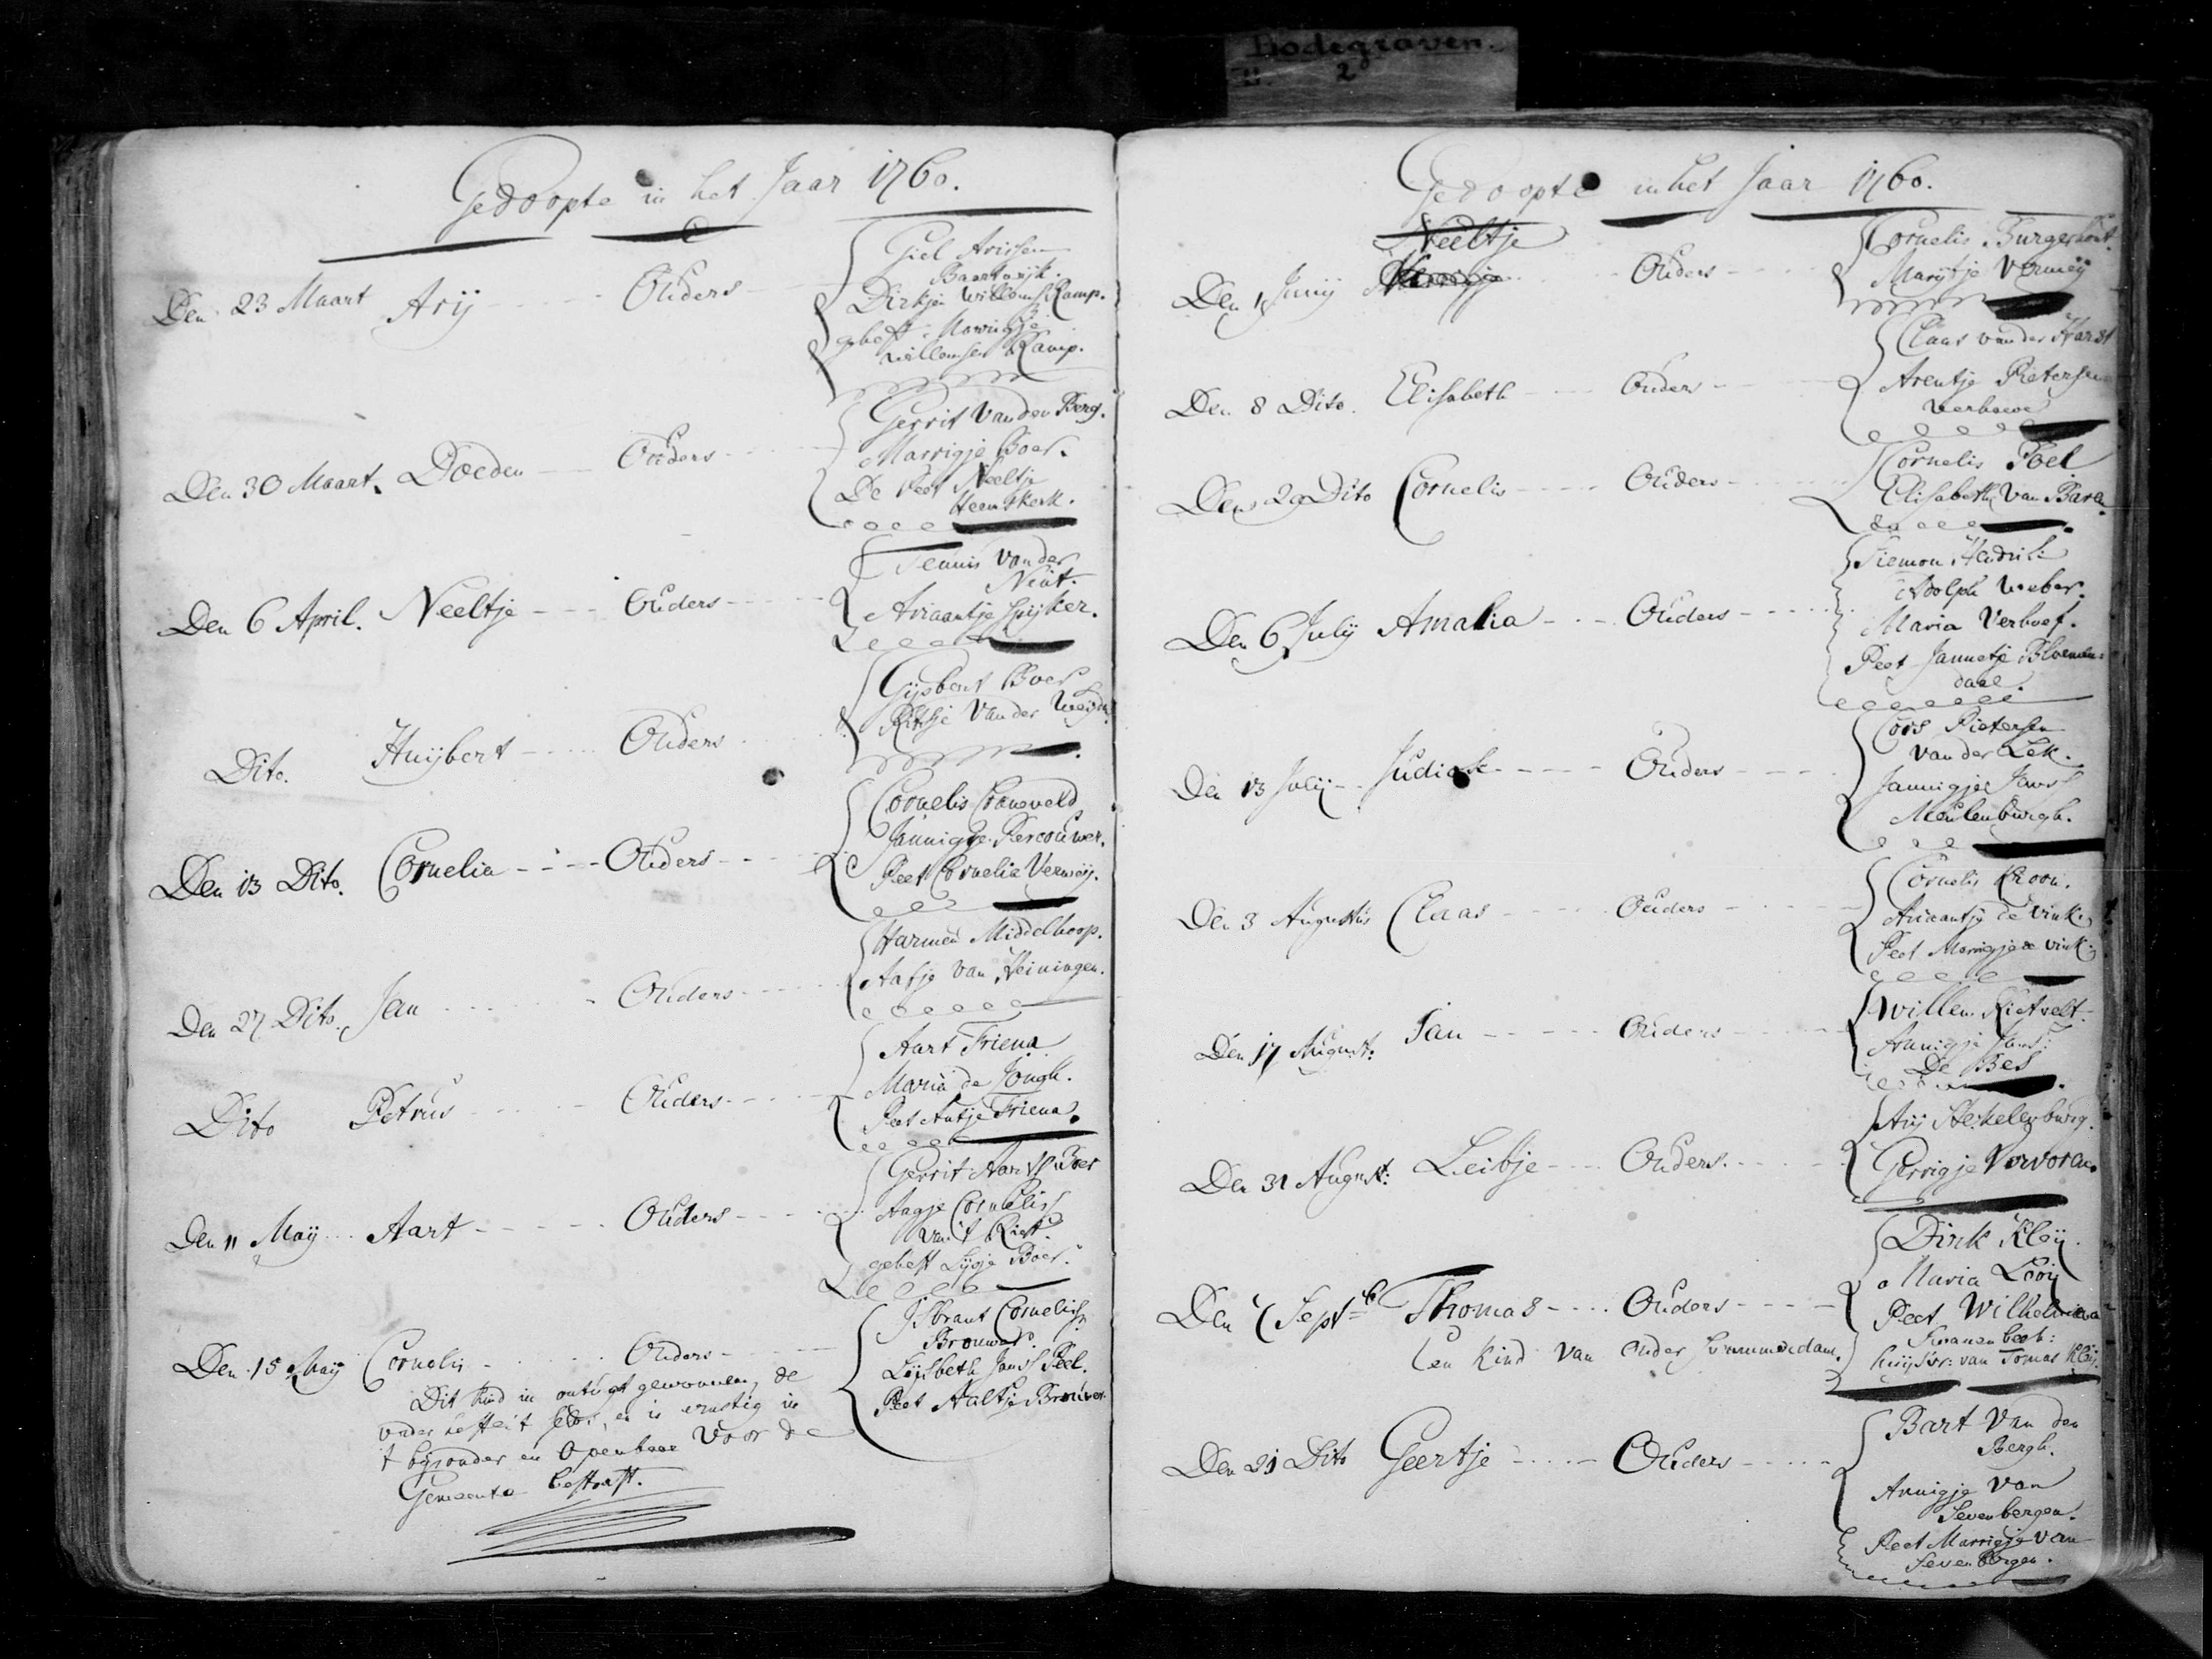 Bodegraven.
2
Gedoopte in het Jaar 1760.
Den 23 Maart Arij Ouders
Giel Arissen
Baartwijk.
Dirkje Willems Kamp.
geheft Marrigje
Willemsen Kamp.
Den 30 Maart. Doeden Ouders
Gerrit van den Berg.
Marrigje Boer.
De Peet Neeltje
Heemskerk.
Den 6 April. Neeltje Ouders
Teunis van der
Neut.
Ariaantje Spijker.
Dito. Huijbert Ouders
Gijsbert Boer
van der
Den 13 Dito. Cornelia Ouders
Cornelis Groeneveld
Jannigje
Peet Cornelia Vermeij.
Den 27 Dito. Jan Ouders
Harmen Middelhoop.
Aafje van Heiningen.
Dito Petrus Ouders
Aart Triena
Maria de Jongh.
Peet Antje Triena.
Den 11 Maij Aart Ouders
Gerrit Aartse Boer
Aagje Cornelis
van 't Riet.
geheft Lijsje Boer.
Den 15 Maij Cornelis Ouders
IJsbrant Cornelisse
Brouwer.
Lijsbeth Jans Peel.
Peet Aaltje Brouwer.
Dit kind in ontugt gewonnen, de
vader heft en is ernstig in
't bijsonder en openbaar voor de
Gemeente bestraft.
Gedoopte in het Jaar 1760.
Neeltje
Den 1 Junij Ouders
Cornelis Burgerhout.
Marijtje Vermeij
Den 8 Dito. Elisabeth Ouders
Claas van der Harst
Arentje Pietersen
Verhoeve
Den 29 Dito Cornelis Ouders
Cornelis Poel
Elisabeth van Baren.
Den 6 Julij Amalia Ouders
Siemon Hendrik
Adolph Weber.
Maria Verhoef.
Peet Jannetje Bloemen=
daal.
Den 13 Julij Judick Ouders
Cors Pietersen
van der Lek.
Jannigje Jans
Meulenburgh.
Den 3 Augustus Claas Ouders
Cornelis Kroon.
Ariaantje de Vink
Peet Marrigje de Vink.
Den 17 August: Jan Ouders
Willem Rietvelt
Annigje Jans:
De Bes
Den 31 August: Leibje Ouders.
Arij Stekelenburg.
Gerrigje Vervoren.
Den 7 Septb Thomas Ouders
Dirk Kleij.
Maria Looij
Peet Wilhelmina
Kranenbeek:
huijsvr: van Tomas Kleij.
Een kind van onder Lummerdam.
Den 21 Dito Geertje Ouders
Bart van den
Bergh.
Annigje van
Sevenbergen.
Peet Marrigje van
Sevenbergen.